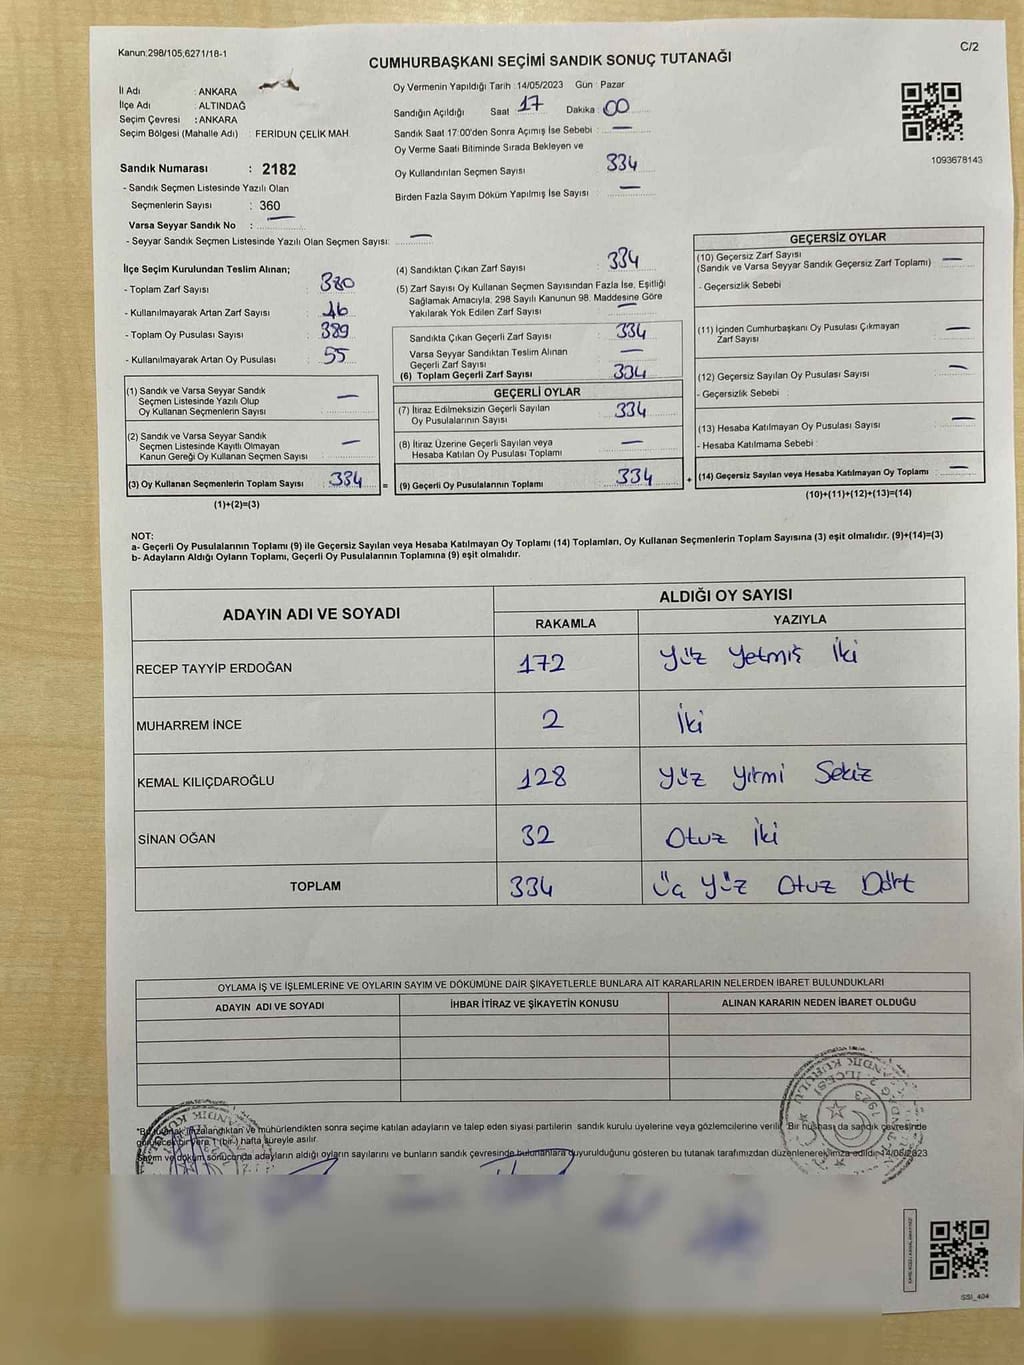 Kanun:298/105,6271/18-1
C/2
CUMHURBAŞKANI SEÇİMİ SANDIK SONUÇ TUTANAĞI
İl Adı : ANKARA
İlçe Adı : ALTINDAĞ
Seçim Çevresi : ANKARA
Seçim Bölgesi (Mahalle Adı) : FERİDUN ÇELİK MAH.
Sandık Numarası : 2182
- Sandık Seçmen Listesinde Yazılı Olan
Seçmenlerin Sayısı : 360
Varsa Seyyar Sandık No :
- Seyyar Sandık Seçmen Listesinde Yazılı Olan Seçmen Sayısı:
Oy Vermenin Yapıldığı Tarih :14/05/2023 Gün : Pazar
Sandığın Açıldığı Saat : 17 Dakika : 00
Sandık Saat 17:00'den Sonra Açımış İse Sebebi :
Oy Verme Saati Bitiminde Sırada Bekleyen ve
Oy Kullandırılan Seçmen Sayısı : 334
Birden Fazla Sayım Döküm Yapılmış İse Sayısı :
1093678143
İlçe Seçim Kurulundan Teslim Alınan;
- Toplam Zarf Sayısı : 380
- Kullanılmayarak Artan Zarf Sayısı : 46
- Toplam Oy Pusulası Sayısı : 389
- Kullanılmayarak Artan Oy Pusulası : 55
(1) Sandık ve Varsa Seyyar Sandık
Seçmen Listesinde Yazılı Olup
Oy Kullanan Seçmenlerin Sayısı :
(2) Sandık ve Varsa Seyyar Sandık
Seçmen Listesinde Kayıtlı Olmayan
Kanun Gereği Oy Kullanan Seçmen Sayısı :
(3) Oy Kullanan Seçmenlerin Toplam Sayısı : 334 =
(1)+(2)=(3)
(4) Sandıktan Çıkan Zarf Sayısı : 334
(5) Zarf Sayısı Oy Kullanan Seçmen Sayısından Fazla İse, Eşitliği
Sağlamak Amacıyla, 298 Sayılı Kanunun 98. Maddesine Göre
Yakılarak Yok Edilen Zarf Sayısı :
Sandıkta Çıkan Geçerli Zarf Sayısı : 334
Varsa Seyyar Sandıktan Teslim Alınan
Geçerli Zarf Sayısı :
(6) Toplam Geçerli Zarf Sayısı : 334
GEÇERLİ OYLAR
(7) İtiraz Edilmeksizin Geçerli Sayılan
Oy Pusulalarının Sayısı : 334
(8) İtiraz Üzerine Geçerli Sayılan veya
Hesaba Katılan Oy Pusulası Toplamı :
(9) Geçerli Oy Pusulalarının Toplamı : 334 +
GEÇERSİZ OYLAR
(10) Geçersiz Zarf Sayısı
(Sandık ve Varsa Seyyar Sandık Geçersiz Zarf Toplamı) :
- Geçersizlik Sebebi :
(11) İçinden Cumhurbaşkanı Oy Pusulası Çıkmayan
Zarf Sayısı :
(12) Geçersiz Sayılan Oy Pusulası Sayısı :
- Geçersizlik Sebebi :
(13) Hesaba Katılmayan Oy Pusulası Sayısı :
- Hesaba Katılmama Sebebi :
(14) Geçersiz Sayılan veya Hesaba Katılmayan Oy Toplamı :
(10)+(11)+(12)+(13)=(14)
NOT:
a- Geçerli Oy Pusulalarının Toplamı (9) ile Geçersiz Sayılan veya Hesaba Katılmayan Oy Toplamı (14) Toplamları, Oy Kullanan Seçmenlerin Toplam Sayısına (3) eşit olmalıdır. (9)+(14)=(3)
b- Adayların Aldığı Oyların Toplamı, Geçerli Oy Pusulalarının Toplamına (9) eşit olmalıdır.
ADAYIN ADI VE SOYADI
ALDIĞI OY SAYISI
RAKAMLA YAZIYLA
RECEP TAYYİP ERDOĞAN 172 Yüz Yetmiş İki
MUHARREM İNCE 2 İki
KEMAL KILIÇDAROĞLU 128 Yüz Yirmi Sekiz
SİNAN OĞAN 32 Otuz İki
TOPLAM 334 Üç Yüz Otuz Dört
OYLAMA İŞ VE İŞLEMLERİNE VE OYLARIN SAYIM VE DÖKÜMÜNE DAİR ŞİKAYETLERLE BUNLARA AİT KARARLARIN NELERDEN İBARET BULUNDUKLARI
ADAYIN ADI VE SOYADI İHBAR İTİRAZ VE ŞİKAYETİN KONUSU ALINAN KARARIN NEDEN İBARET OLDUĞU
imzalandıktan ve mühürlendikten sonra seçime katılan adayların ve talep eden siyasi partilerin sandık kurulu üyelerine veya gözlemcilerine verilir. Bir nüshası da sandık çevresinde
bir yere 1 (bir) hafta süreyle asılır.
Sayım ve döküm sonucunda adayların aldığı oyların sayılarını ve bunların sandık çevresinde bulunanlara duyurulduğunu gösteren bu tutanak tarafımızdan düzenlenerek imza edildi. 14/05/2023
SSI_404